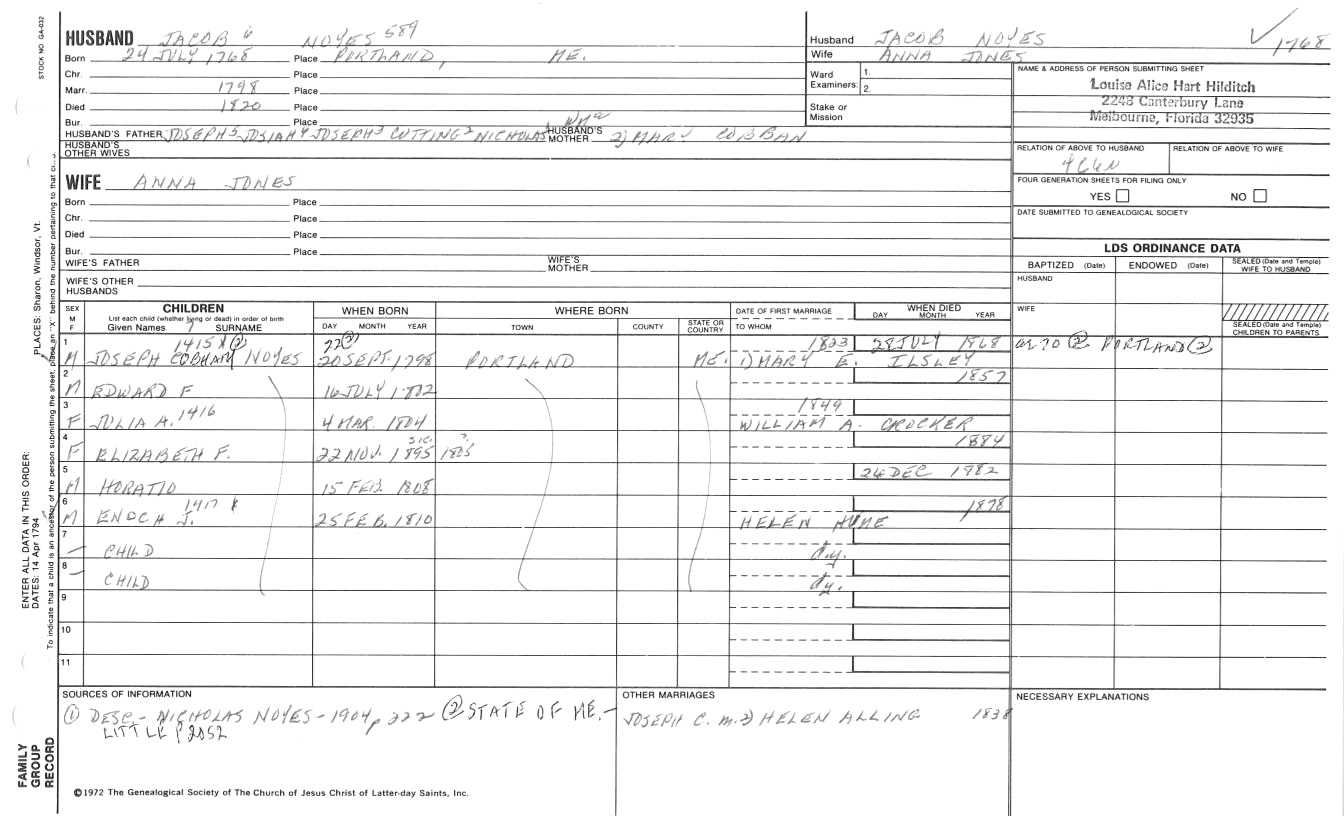 STOCK NO. GA-032
HUSBAND JACOB 6 NOYES 589
Born 24 JULY 1768 Place PORTLAND, ME.
Chr. Place
Marr. 1798 Place
Died 1820 Place
Bur. Place
HUSBAND'S FATHER JOSEPH 5 JOSIAH 4 JOSEPH 3 CUTTING 2 NICHOLAS HUSBAND'S MOTHER 2) MARY COBBAN
HUSBAND'S OTHER WIVES
WIFE ANNA JONES
Born Place
Chr. Place
Died Place
Bur. Place
WIFE'S FATHER WIFE'S MOTHER
WIFE'S OTHER HUSBANDS
Husband JACOB NOYES
Wife ANNA JONES
Ward Examiners: 1. 2.
Stake or Mission
✓ 1768
NAME & ADDRESS OF PERSON SUBMITTING SHEET
Louise Alice Hart Hilditch
2248 Canterbury Lane
Melbourne, Florida 32935
RELATION OF ABOVE TO HUSBAND RELATION OF ABOVE TO WIFE
FOUR GENERATION SHEETS FOR FILING ONLY
YES NO
DATE SUBMITTED TO GENEALOGICAL SOCIETY
LDS ORDINANCE DATA
BAPTIZED (Date) ENDOWED (Date) SEALED (Date and Temple) WIFE TO HUSBAND
HUSBAND
WIFE
SEALED (Date and Temple) CHILDREN TO PARENTS
SEX M F CHILDREN WHEN BORN WHERE BORN DATE OF FIRST MARRIAGE WHEN DIED
List each child (whether living or dead) in order of birth
Given Names SURNAME DAY MONTH YEAR TOWN COUNTY STATE OR COUNTRY TO WHOM DAY MONTH YEAR
1 1415 X (2) 22(2) 1823 28 JULY 1868 at 70 (2) PORTLAND (2)
M JOSEPH COBHAM NOYES 20 SEPT. 1798 PORTLAND ME. 1) MARY E. ILSLEY
2 1857
M EDWARD F 16 JULY 1802
3 1416 1849
F JULIA A. 4 MAR. 1804 WILLIAM A. CROCKER
4 SIC. ? 1884
F ELIZABETH F. 22 NOV. 1895 1805
5 24 DEC 1982
M HORATIO 15 FEB. 1808
6 1417 X 1878
M ENOCH J. 25 FEB. 1810 HELEN HUME
7 — CHILD d.y.
8 — CHILD dy.
9
10
11
SOURCES OF INFORMATION
(1) DESC. - NICHOLAS NOYES - 1904, p 222 (2) STATE OF ME. -
LITTLE p 2052
OTHER MARRIAGES
JOSEPH C. m. 2) HELEN ALLING 1838
NECESSARY EXPLANATIONS
©1972 The Genealogical Society of The Church of Jesus Christ of Latter-day Saints, Inc.
FAMILY GROUP RECORD
ENTER ALL DATA IN THIS ORDER:
DATES: 14 Apr 1794 PLACES: Sharon, Windsor, Vt.
To indicate that a child is an ancestor of the person submitting the sheet, place an "X" behind the number pertaining to that